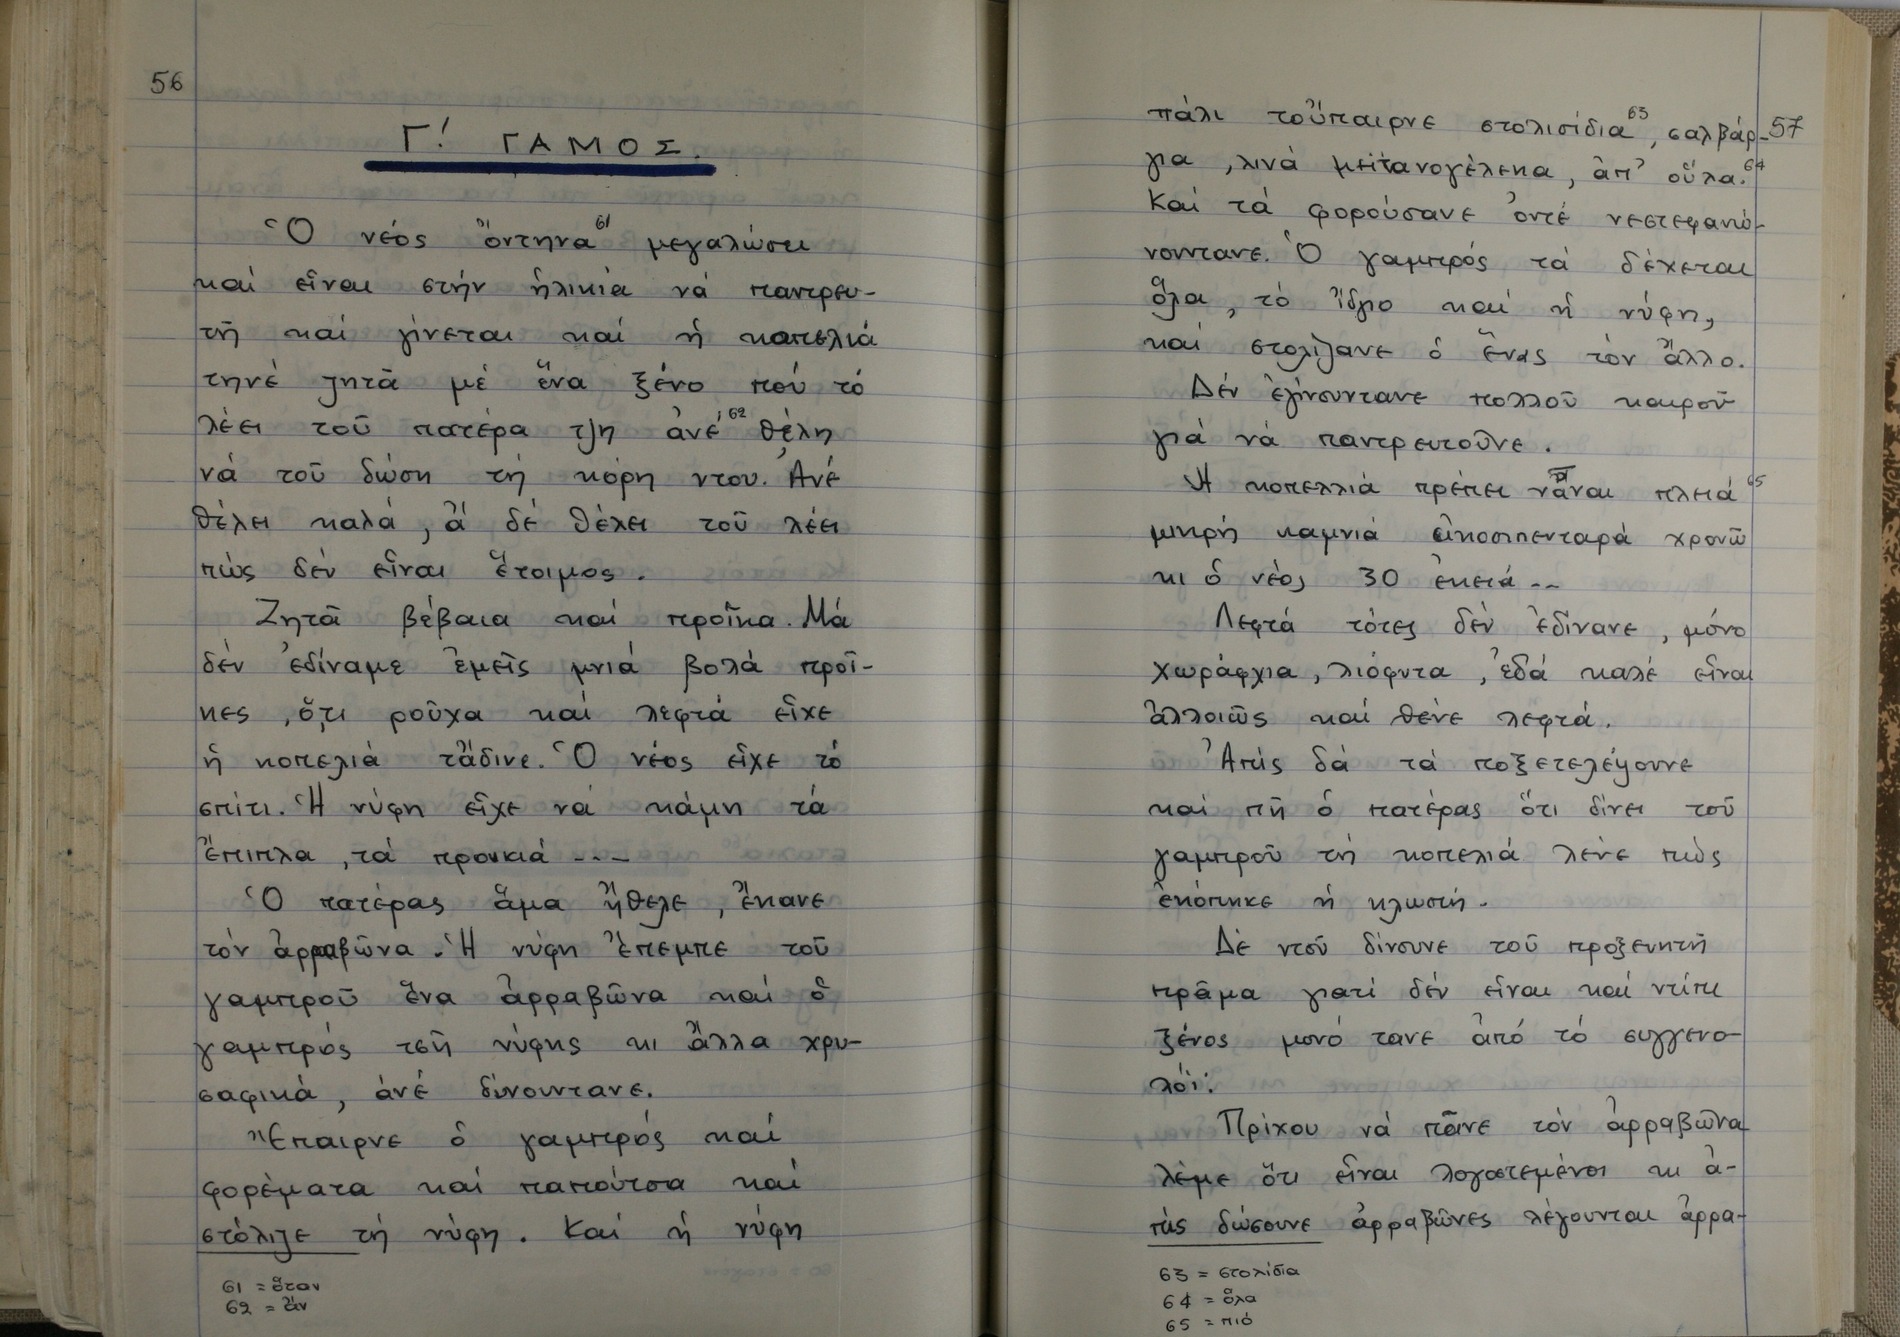 56
Γ! ΓΑΜΟΣ.
Ὁ νέος ὄντηνα⁶¹ μεγαλώσει
καί εἶναι στήν ἡλικία νά παντρευ-
τῆ καί γίνεται καί ἡ κοπελιά
τηνέ ζητᾶ μέ ἕνα ξένο πού τό
λέει τοῦ πατέρα τζη ἀνέ⁶² θέλη
νά τοῦ δώση τή κόρη ντου. Ἀνέ
θέλει καλά, ἄ δέ θέλει τοῦ λέει
πώς δέν εἶναι ἕτοιμος.
Ζητᾶ βέβαια καί προῖκα. Μά
δέν ἐδίναμε ἐμεῖς μνιά βολά προῖ-
κες, ὅ,τι ροῦχα καί λεφτά εἶχε
ἡ κοπελιά τἄδινε. Ὁ νέος εἶχε τό
σπίτι. Ἡ νύφη εἶχε νά κάμη τά
ἔπιπλα, τά προικιά ---
Ὁ πατέρας ἅμα ἤθελε, ἔκανε
τόν ἀρραβῶνα. Ἡ νύφη ἔπεμπε τοῦ
γαμπροῦ ἕνα ἀρραβῶνα καί ὁ
γαμπρός τσῆ νύφης κι ἄλλα χρυ-
σαφικά, ἀνέ δίνουντανε.
Ἔπαιρνε ὁ γαμπρός καί
φορέματα καί παπούτσα καί
στόλιζε τή νύφη. Καί ἡ νύφη
61 = ὅταν
62 = ἄν
57
πάλι τοὔπαιρνε στολισίδια⁶³, σαλβάρ-
για, λινά μεϊτανογέλεκα, ἀπ' οὕλα.⁶⁴
Καί τά φορούσανε ὀντέ νεστεφανώ-
νουντανε. Ὁ γαμπρός τά δέχεται
ὅλα, τό ἴδιο καί ἡ νύφη,
καί στολίζανε ὁ ἕνας τόν ἄλλο.
Δέν ἐγίνουντανε πολλοῦ καιροῦ
γιά νά παντρευτοῦνε.
Ἡ κοπελλιά πρέπει νἆναι πλειά⁶⁵
μικρή καμνιά εἰκοσιπενταρά χρονῶ
κι ὁ νέος 30 ἐκειά --
Λεφτά τότες δέν ἐδίνανε, μόνο
χωράφχια, λιόφυτα, ἐδά καλέ εἶναι
ἀλλοιῶς καί θένε λεφτά.
Ἀπής δά τά ποξετελέψουνε
καί πῆ ὁ πατέρας ὅτι δίνει τοῦ
γαμπροῦ τή κοπελιά λένε πώς
ἐκόπηκε ἡ κλωστή.
Δέ ντοῦ δίνουνε τοῦ προξενητῆ
πρᾶμα γιατί δέν εἶναι καί ντίπι
ξένος μονό τανε ἀπό τό συγγενο-
λόϊ.
Πρίχου νά πᾶνε τόν ἀρραβῶνα
λέμε ὅτι εἶναι λογοστεμένοι κι ἀ-
πής δώσουνε ἀρραβῶνες λέγουνται ἀρρα-
63 = στολίδια
64 = ὅλα
65 = πιό